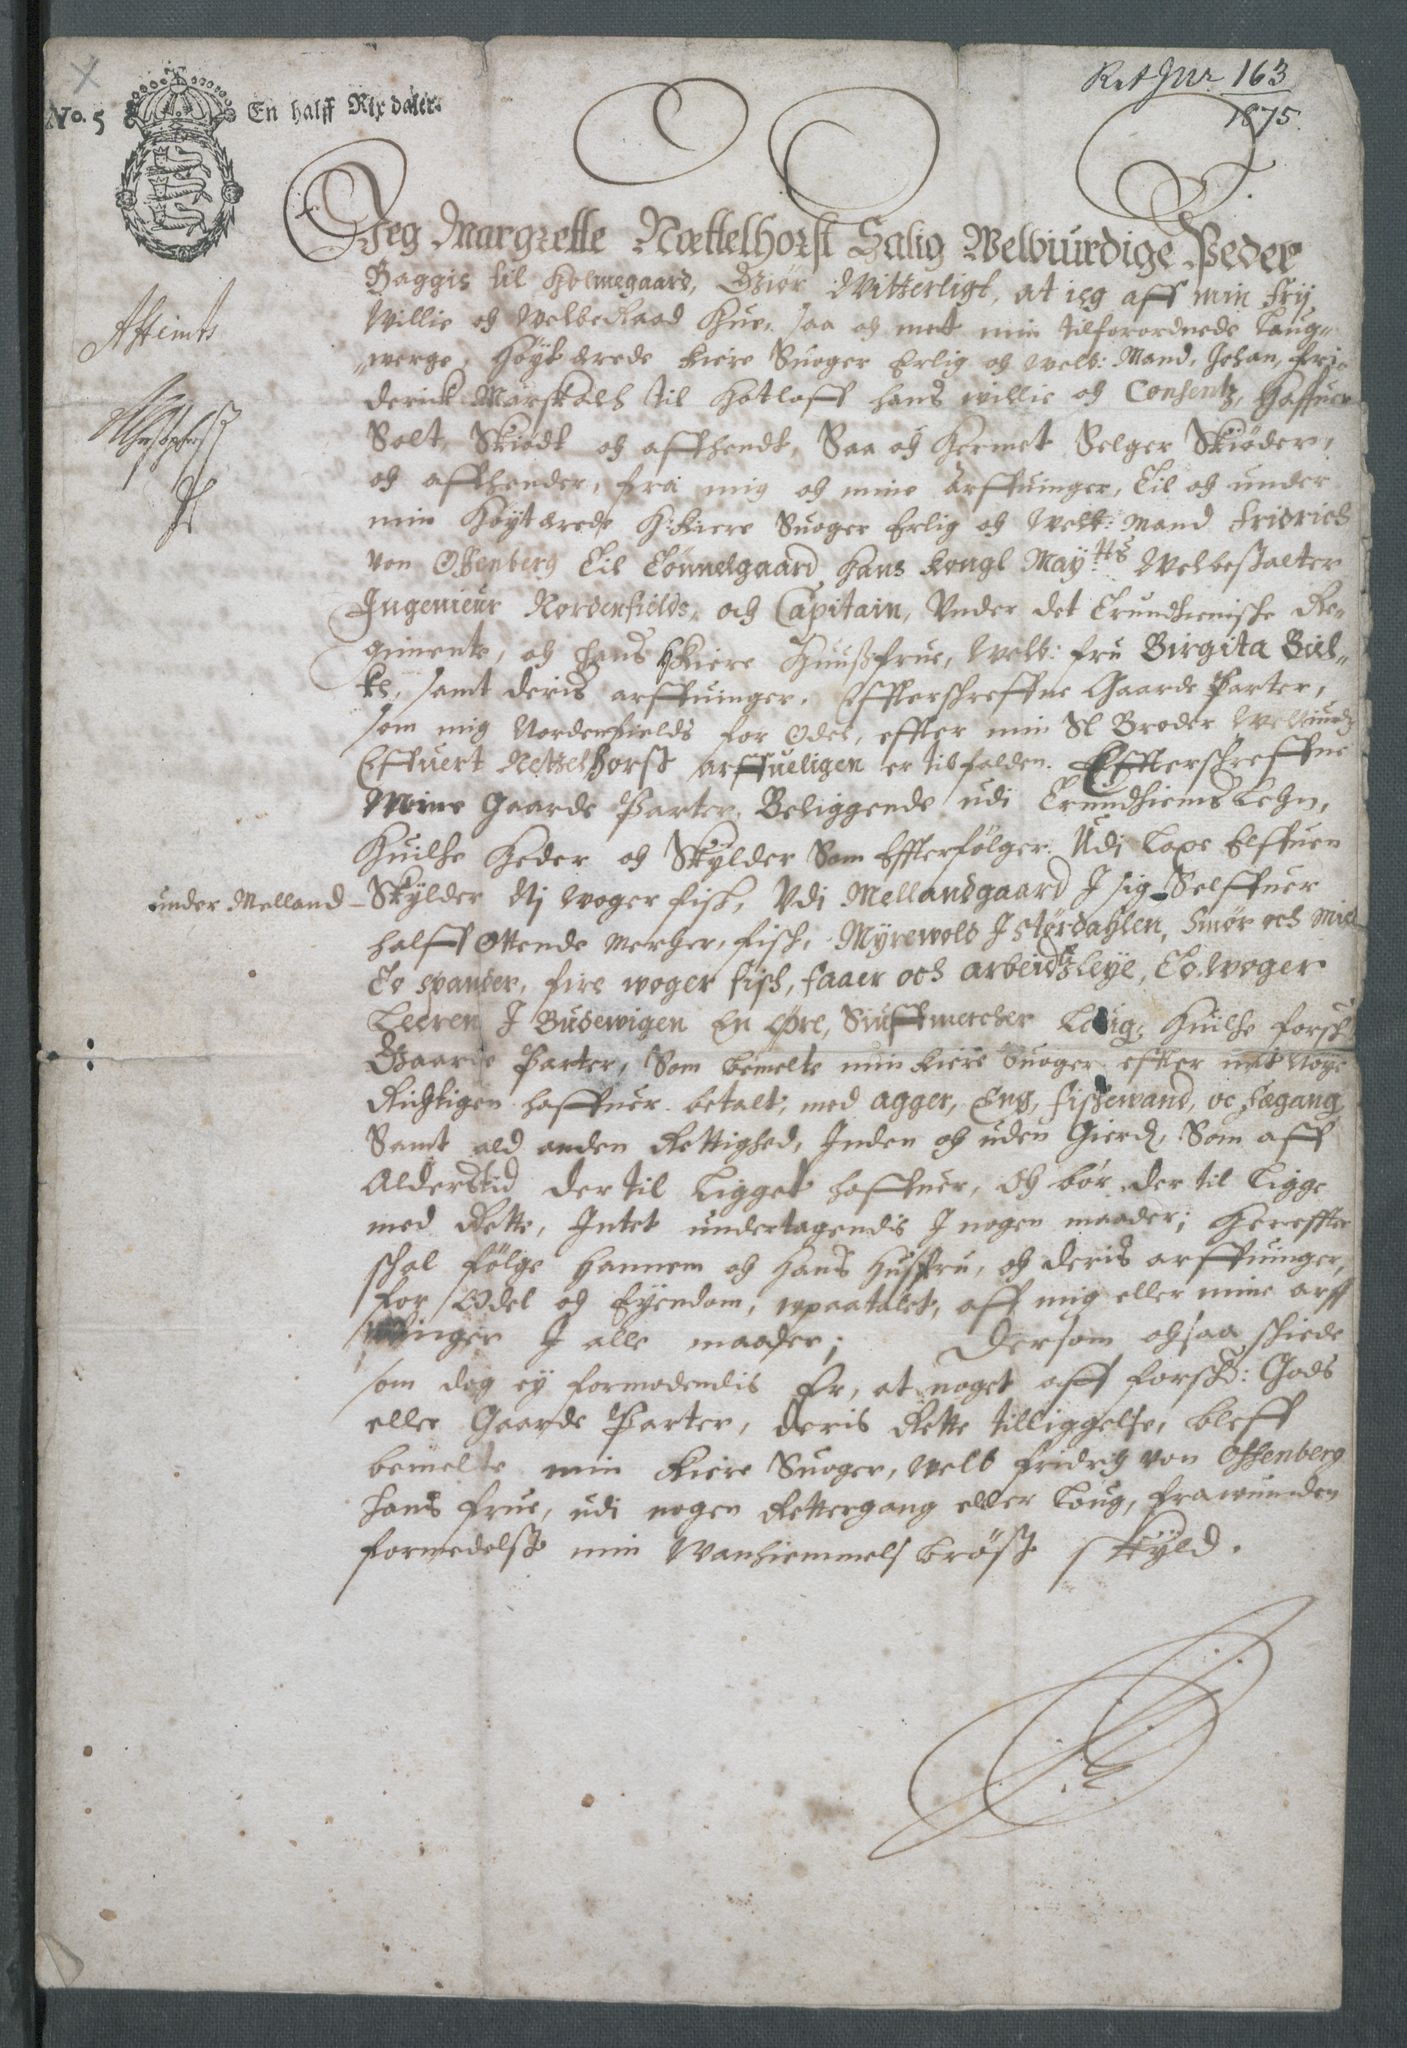 No. 5 En halff Rix daler.
163
1875.
Jeg Margrette Nættelhorst Salig Welbiurdige Peder
Baggis til Holmegaard, Giør Witterligt, at ieg aff min frj
Willie och Welberaad Hue, saa och met min tilforordnede Laug¬
werge, Høyt ærede kiere Suoger Erlig och Welb: Mand, Johan, fri¬
derick Marskalch til Hotloff hans willie och Consentz, Haffuer
Solt, Skiødt och affhendt, Saa och hermet Selger Skiøder,
och affhender, fra mig och mine Arffuinger, Til och under
min Høyt ærede H: Kiere Suoger Erlig och Welb: Mand Fridrich
von Offenberg Til Tønnelgaard, hans Kongl Maytts Welbestalter
Ingenieur Nordenfields, och Capitain, Vnder det Trundhiemske Re¬
gimente, och hans H Kiere Huussfrue, Welb: fru Birgita Biel¬
ke, samt deris arffuinger, Effterschreffne Gaarde Parter,
som mig Nordenfields for Odel, effter min Sl Broder Welbiurdig
Effuert Nettelhorst arffueligen er tilfalden. Effterschreffne
Mine Gaarde Parter, Beliggende udi Trundhiems Lehn,
Huilche Heder och Skylder Som Effterfølger: Udi Laxe Elffuen
under Melland
Skylder iij woger fisk, Vdi Mellandgaard J sig Selffuer
halff Ottende Mercher, fisch, Myrewold J Størdahlen, Smør och Miel
To spander, fire woger fisch, faaer och arbeidzleye, To woger
Leeren J Budewigen En Øre, Siuff mercher Leig, Huilche forsk:
Gaarde Parter, Som bemelte min kiere Suoger effter mit Nøye
Richtigen haffuer betalt, med agger, Eng, fischewand, oc fægang
Samt ald anden Rettighed, Inden och uden Gierdz, Som aff
Alderstid der til Ligget haffuer, och bør der til Ligge
med Rette, Intet undertagendis J nogen maader; Hereffter
schal følge hannem och hans Husfru, och deris arffuinger,
for Odel och Eyendom, vpaatalet, aff mig eller mine arff
uinger J alle maader; Dersom ochsaa schiede
som dog ey formodendis Er, at noget aff forsch: Gods
eller Gaarde Parter, deris Rette tilliggelse, bleff
bemelte min Kiere Suoger, Welb Fridrich von Offenberg
hans frue, udi nogen Rettergang eller Laug, frawunden
formedelst min Wanhiemmels brøst skyld.